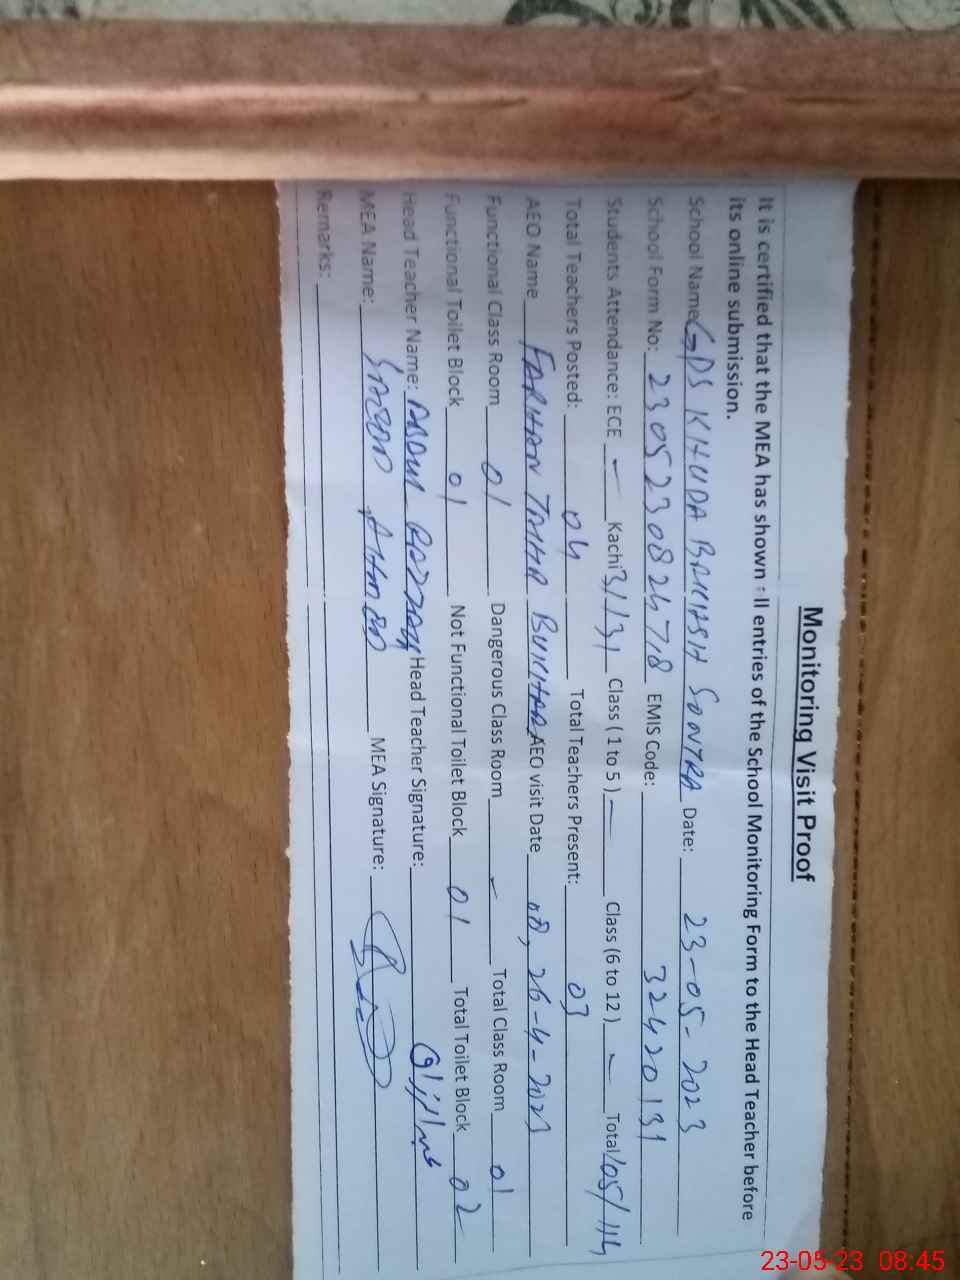 Monitoring Visit Proof
It is certified that the MEA has shown all entries of the School Monitoring Form to the Head Teacher before
its online submission.
School Name GPS KHUDA BAKHSH SONTRA Date: 23-05-2023
School Form No: 2305230824718 EMIS Code: 32420131
Students Attendance: ECE - Kachi 31/31 Class ( 1 to 5 ) - Class (6 to 12 ) - Total 105/114
Total Teachers Posted: 04 Total Teachers Present: 03
AEO Name FARHAN TAHIR BUKHARI AEO visit Date 08, 26-4-2023
Functional Class Room 01 Dangerous Class Room - Total Class Room 01
Functional Toilet Block 01 Not Functional Toilet Block 01 Total Toilet Block 02
Head Teacher Name: ABDUL RAZZAQ Head Teacher Signature:
MEA Name: SAEED AHMAD MEA Signature:
Remarks:
23-05-23 08:45